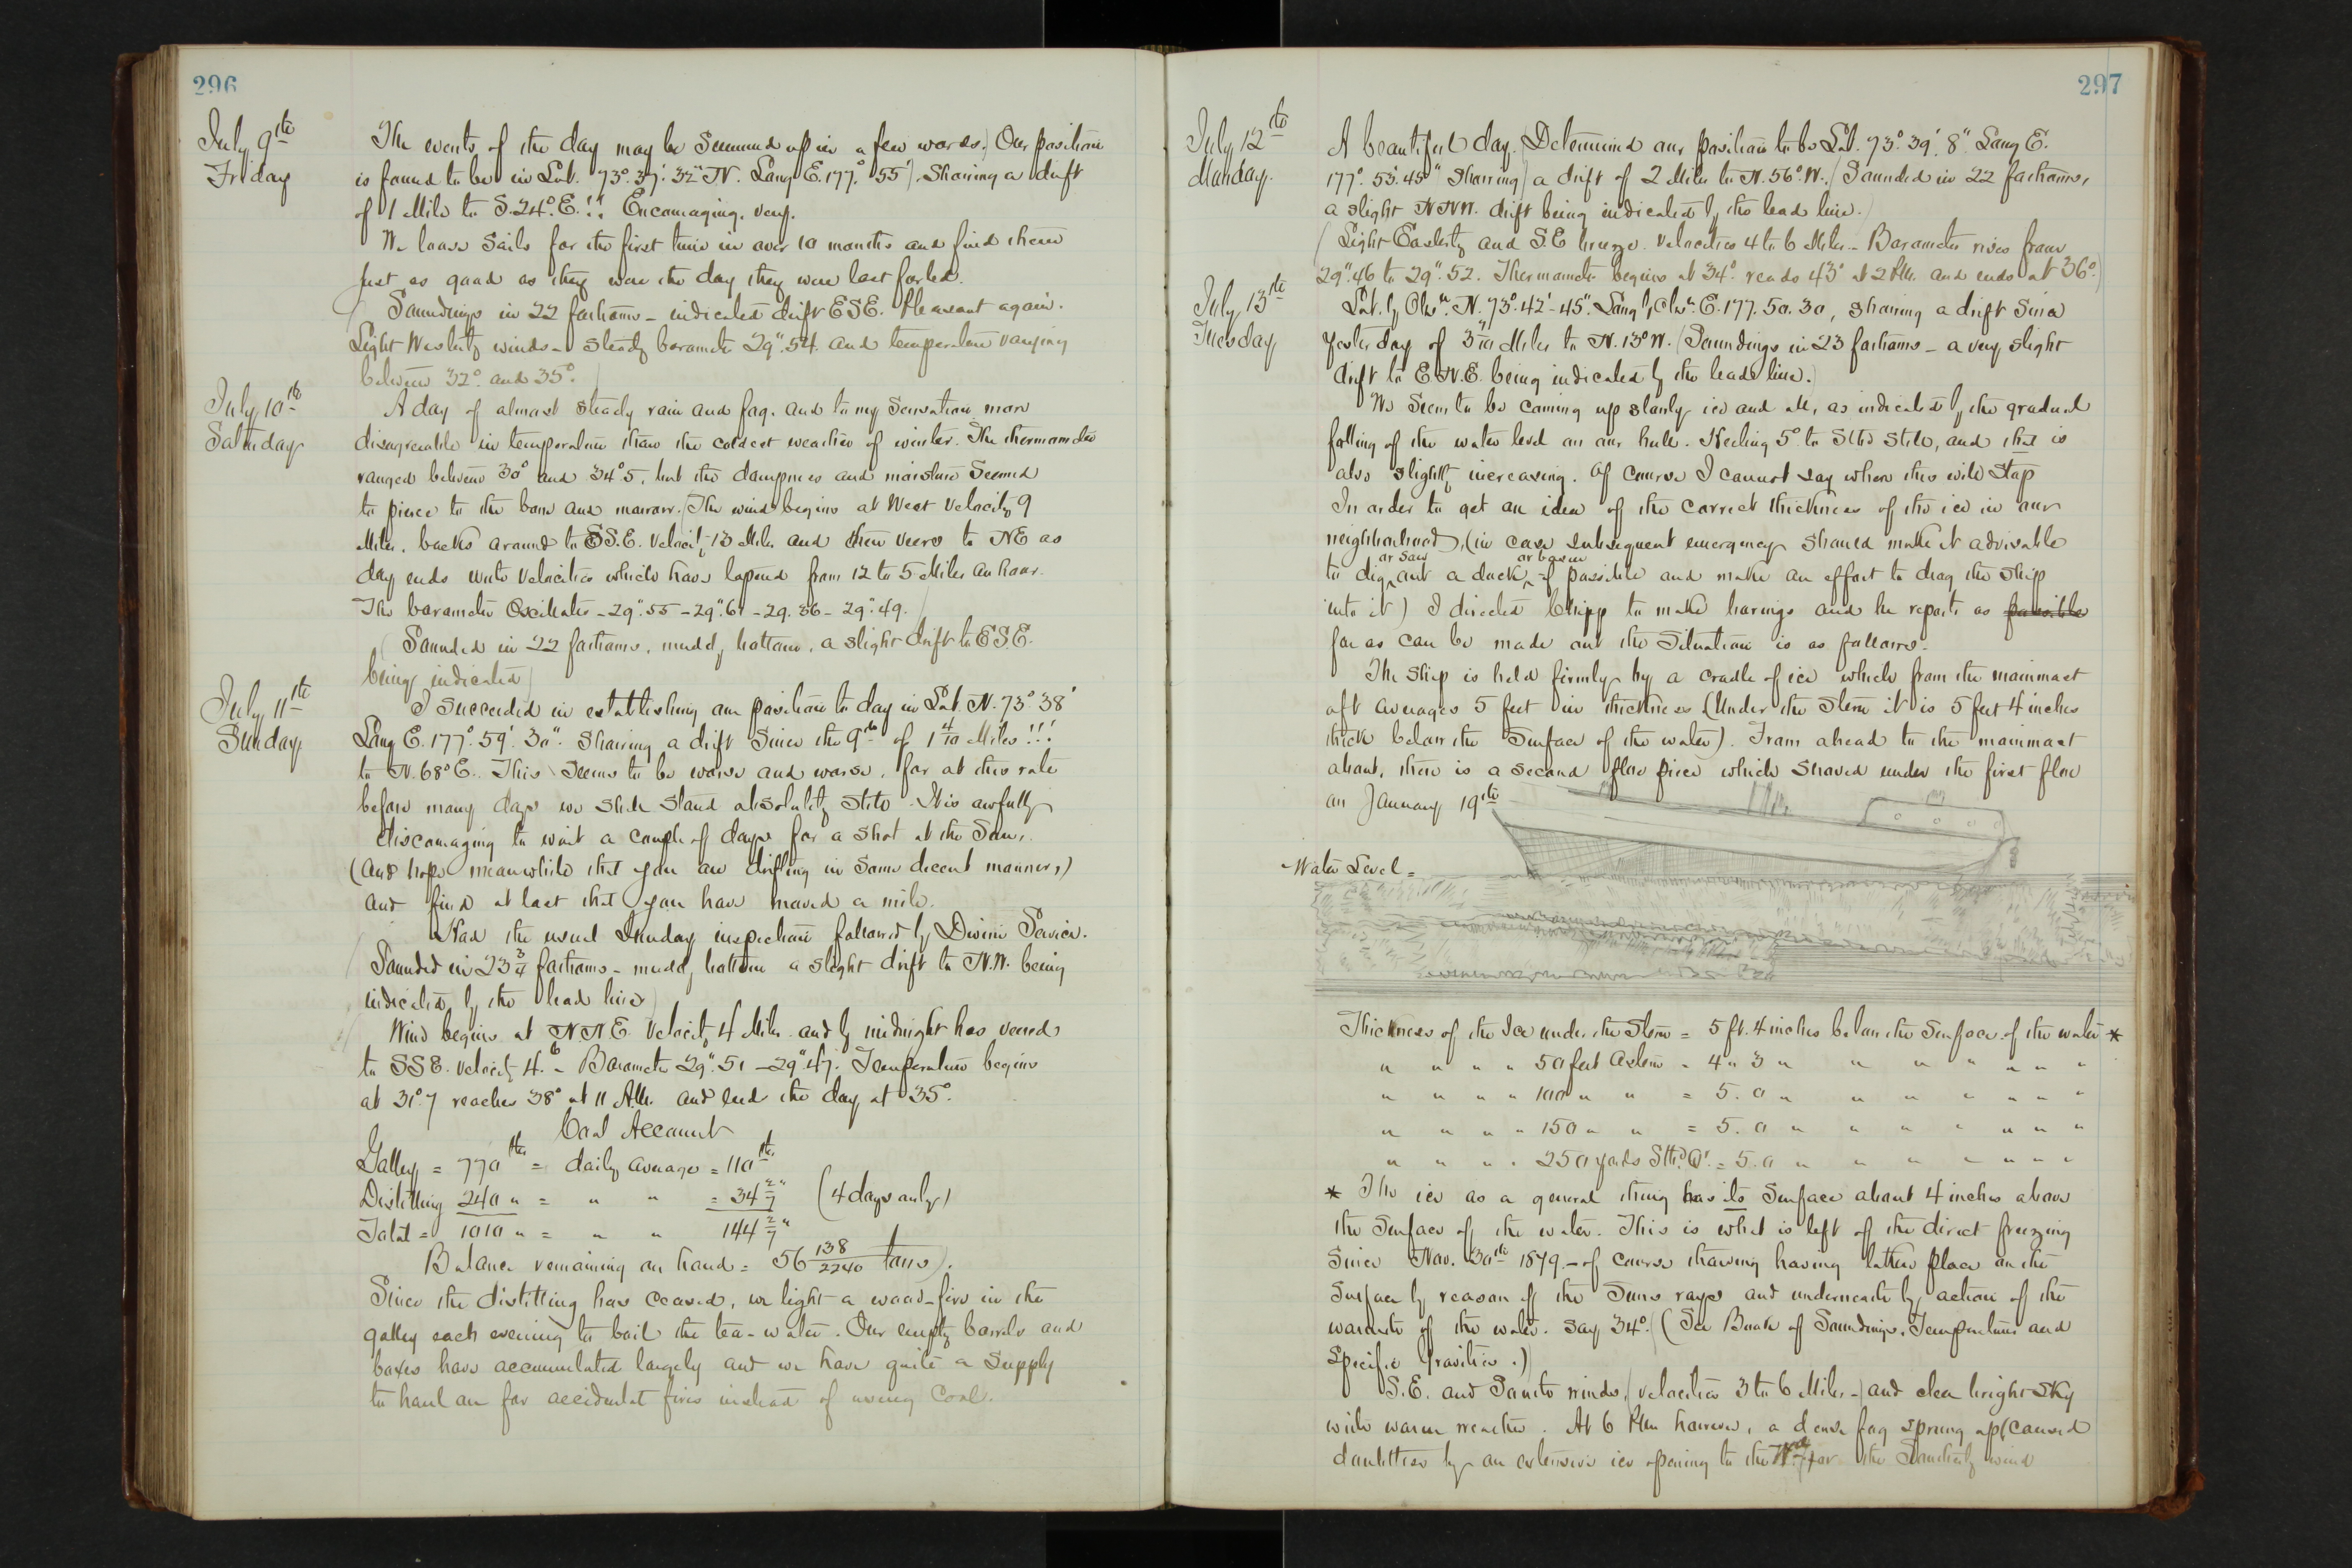 296
July 9th
Friday
The events of the day may be summed up in a few words. (Our position
is found to be in Lat. 73°. 37'. 32" N. Long E. 177.° 55'). Showing a drift
of 1 Mile to S.24°.E.!! Encouraging. very.
We loose sails for the first time in over 10 months and find them
just as good as they were the day they were last furled.
(Soundings in 22 fathoms - indicated drift ESE. Pleasant again.
Light Westerly winds - steady barometer 29".54. and temperature varying
between 32° and 35°.)
July 10th
Saturday
A day of almost steady rain and fog. And to my sensation more
disagreeable in temperature than the coldest weather of winter. The thermometer
ranged between 30° and 34°.5, but the dampness and moisture seemed
to pierce to the bone and marrow. (The wind begins at West Velocity 9
Miles. backs around to SS.E. Velocity 13 Miles and then veers to NE as
day ends with velocities which have lapsed from 12 to 5 Miles an hour.
The barometer Oscillates - 29".55 - 29".61 - 29.56 - 29".49.
(Sounded in 22 fathoms, muddy bottom, a slight drift to E.S.E.
being indicated)
July 11th
Sunday
I succeeded in establishing our position to day in Lat. N. 73° 38'
Long E. 177°. 59'. 30". Showing a drift since the 9th of 1 4/10 Miles!!!
to N.68°E. This seems to be worse and worse, for at this rate
before many days we shall stand absolutely still. It is awfully
discouraging to wait a couple of days for a shot at the Sun,
(and hope meanwhile that you are drifting in some decent manner,)
and find at last that you have moved a mile.
Had the usual Sunday inspection followed by Divine Service.
(Sounded in 23 3/4 fathoms - muddy bottom a slight drift to N.W. being
indicated by the lead line)
(Wind begins at NNE Velocity 4 Miles and by midnight has veered
to SSE. Velocity 4. - Barometer 29".51 - 29".47. Temperature begins
at 31°.7 reaches 38° at 11 A.M. and ends the day at 35°.
Coal Account
Galley = 770 lbs = daily average = 110 lbs
Distilling 240 " = " " = 34 2/7 " (4 days only)
Total = 1010 " = " " 144 2/7 "
Balance remaining on hand = 56 138/2240 tons).
Since the distilling has ceased, we light a wood-fire in the
galley each evening to boil the tea-water. Our empty barrels and
boxes have accumulated largely and we have quite a supply
to haul on for accidental fires instead of using Coal.
297
July 12th
Monday.
A beautiful day. (Determined our position to be Lat. 73°. 39'. 8" Long E.
177°. 55'. 45" showing) a drift of 2 Miles to N.56°.W. (Sounded in 22 fathoms,
a slight NNW. drift being indicated by the lead line.)
(Light Easterly and S.E breeze. Velocities 4 to 6 Miles - Barometer rises from
29".46 to 29".52. Thermometer begins at 34°. reads 43° at 2 P.M. and ends at 36°.)
July 13th
Tuesday
Lat. by Obsn. N. 73°.42'-45". Long by Obsn. E. 177.50.30, showing a drift since
yesterday of 3 9/10 Miles to N.13°W. (Soundings in 23 fathoms - a very slight
drift to E.N.E. being indicated by the lead line.)
We seem to be coming up slowly ice and all, as indicated by the gradual
falling of the water level on our hull. Heeling 5° to Stbd still, and that is
also slightly increasing. Of course I cannot say when this will stop
In order to get an idea of the correct thickness of the ice in our
neighborhood, (in case subsequent emergency should make it advisable
or saw or basin
to dig out a dock if possible and make an effort to drag the ship
into it) I directed Chipp to make borings and he reports as possible
far as can be made out the situation is as follows.
The Ship is held firmly by a cradle of ice which from the mainmast
aft averages 5 feet in thickness (Under the stern it is 5 feet 4 inches
thick below the surface of the water). From ahead to the mainmast
about, there is a second floe piece which shoved under the first floe
on January 19th
Water Level =
Thickness of the Ice under the Stern = 5 ft. 4 inches below the surface of the water *
" " " " 50 feet astern = 4 " 3 " " " " " " "
" " " " 100 " " = 5. 0 " " " " " " "
" " " " 150 " " = 5. 0 " " " " " " "
" " " " 250 yards Stbd Qr. = 5. 0 " " " " " " "
* The ice as a general thing has its surface about 4 inches above
the surface of the water. This is what is left of the direct freezing
since Nov. 30th 1879. - of course thawing having taken place on the
surface by reason of the Suns rays and underneath by action of the
warmth of the water. say 34°. (See Book of Soundings, Temperatures and
Specific Gravities.)
S.E. and South winds, (velocities 3 to 6 Miles -) and clear bright sky
with warm weather. At 6 P.M. however, a dense fog sprung up (caused
doubtless by an extensive ice opening to the for the Southerly wind